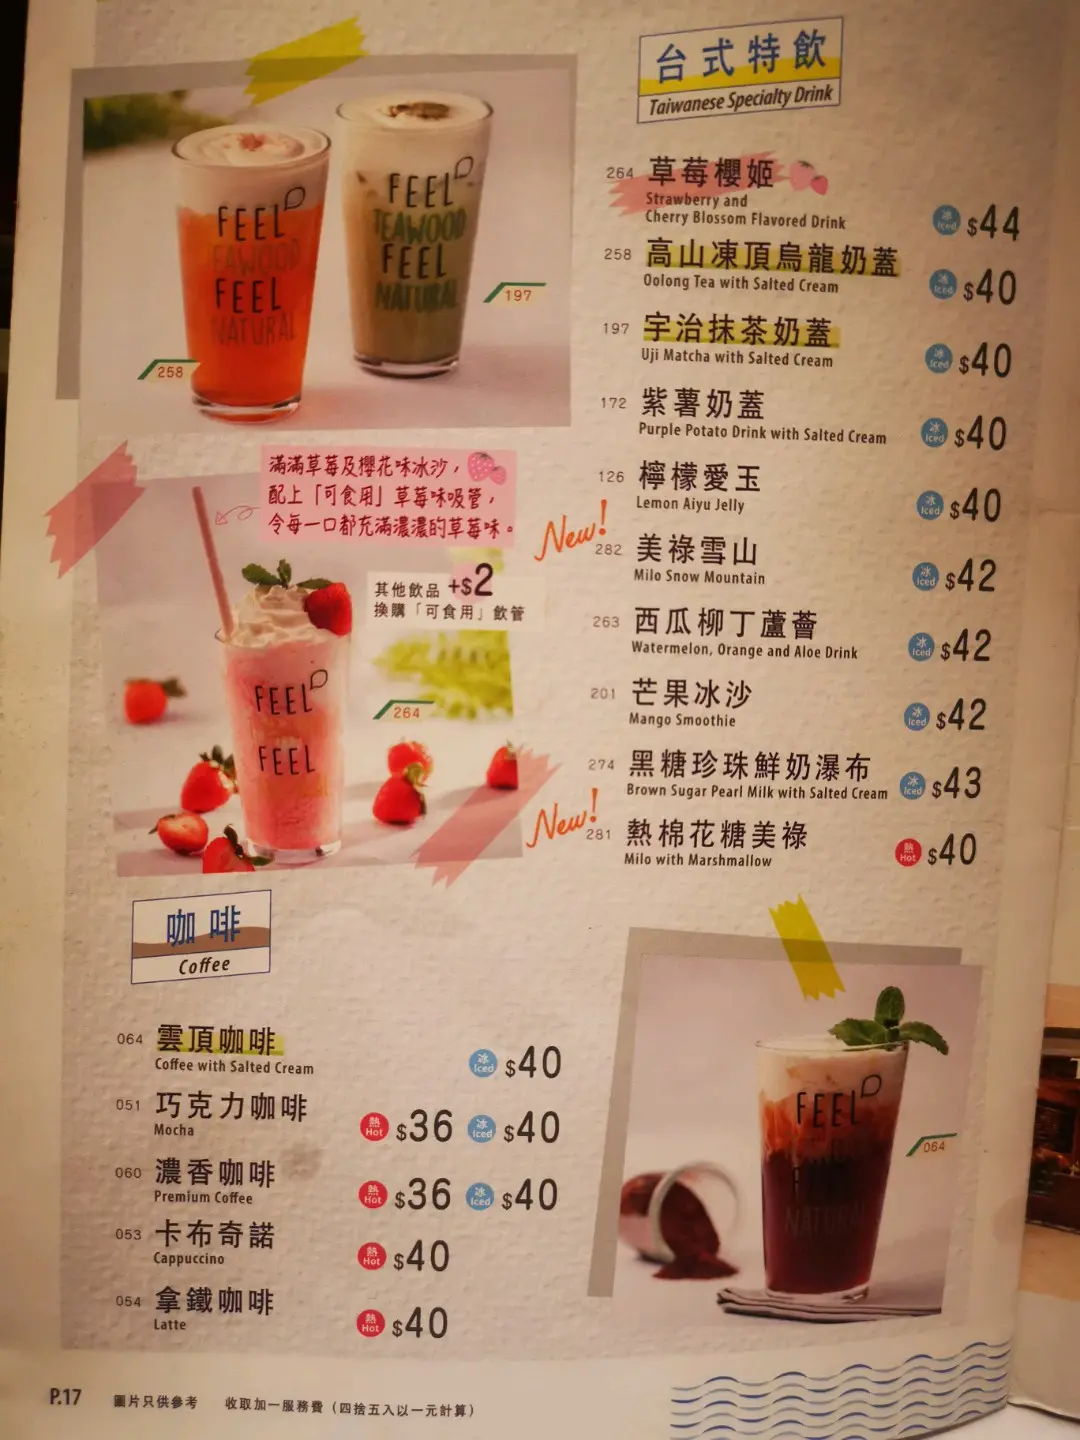 台式特飲
Taiwanese Specialty Drink
264 草莓櫻姬
Strawberry and
Cherry Blossom Flavored Drink
冰 Iced $44
258 高山凍頂烏龍奶蓋
Oolong Tea with Salted Cream
冰 Iced $40
197 宇治抹茶奶蓋
Uji Matcha with Salted Cream
冰 Iced $40
172 紫薯奶蓋
Purple Potato Drink with Salted Cream
冰 Iced $40
126 檸檬愛玉
Lemon Aiyu Jelly
冰 Iced $40
New!
282 美祿雪山
Milo Snow Mountain
冰 Iced $42
263 西瓜柳丁蘆薈
Watermelon, Orange and Aloe Drink
冰 Iced $42
201 芒果冰沙
Mango Smoothie
冰 Iced $42
274 黑糖珍珠鮮奶瀑布
Brown Sugar Pearl Milk with Salted Cream
冰 Iced $43
New!
281 熱棉花糖美祿
Milo with Marshmallow
熱 Hot $40
FEEL
TEAWOOD
FEEL
NATURAL
197
FEEL
FEEL
NATURAL
258
滿滿草莓及櫻花味冰沙，
配上「可食用」草莓味吸管，
令每一口都充滿濃濃的草莓味。
其他飲品 +$2
換購「可食用」飲管
FEEL
FEEL
264
咖啡
Coffee
064 雲頂咖啡
Coffee with Salted Cream
冰 Iced $40
051 巧克力咖啡
Mocha
熱 Hot $36 冰 Iced $40
060 濃香咖啡
Premium Coffee
熱 Hot $36 冰 Iced $40
053 卡布奇諾
Cappuccino
熱 Hot $40
054 拿鐵咖啡
Latte
熱 Hot $40
FEEL
NATURAL
064
P.17 圖片只供參考 收取加一服務費（四捨五入以一元計算）